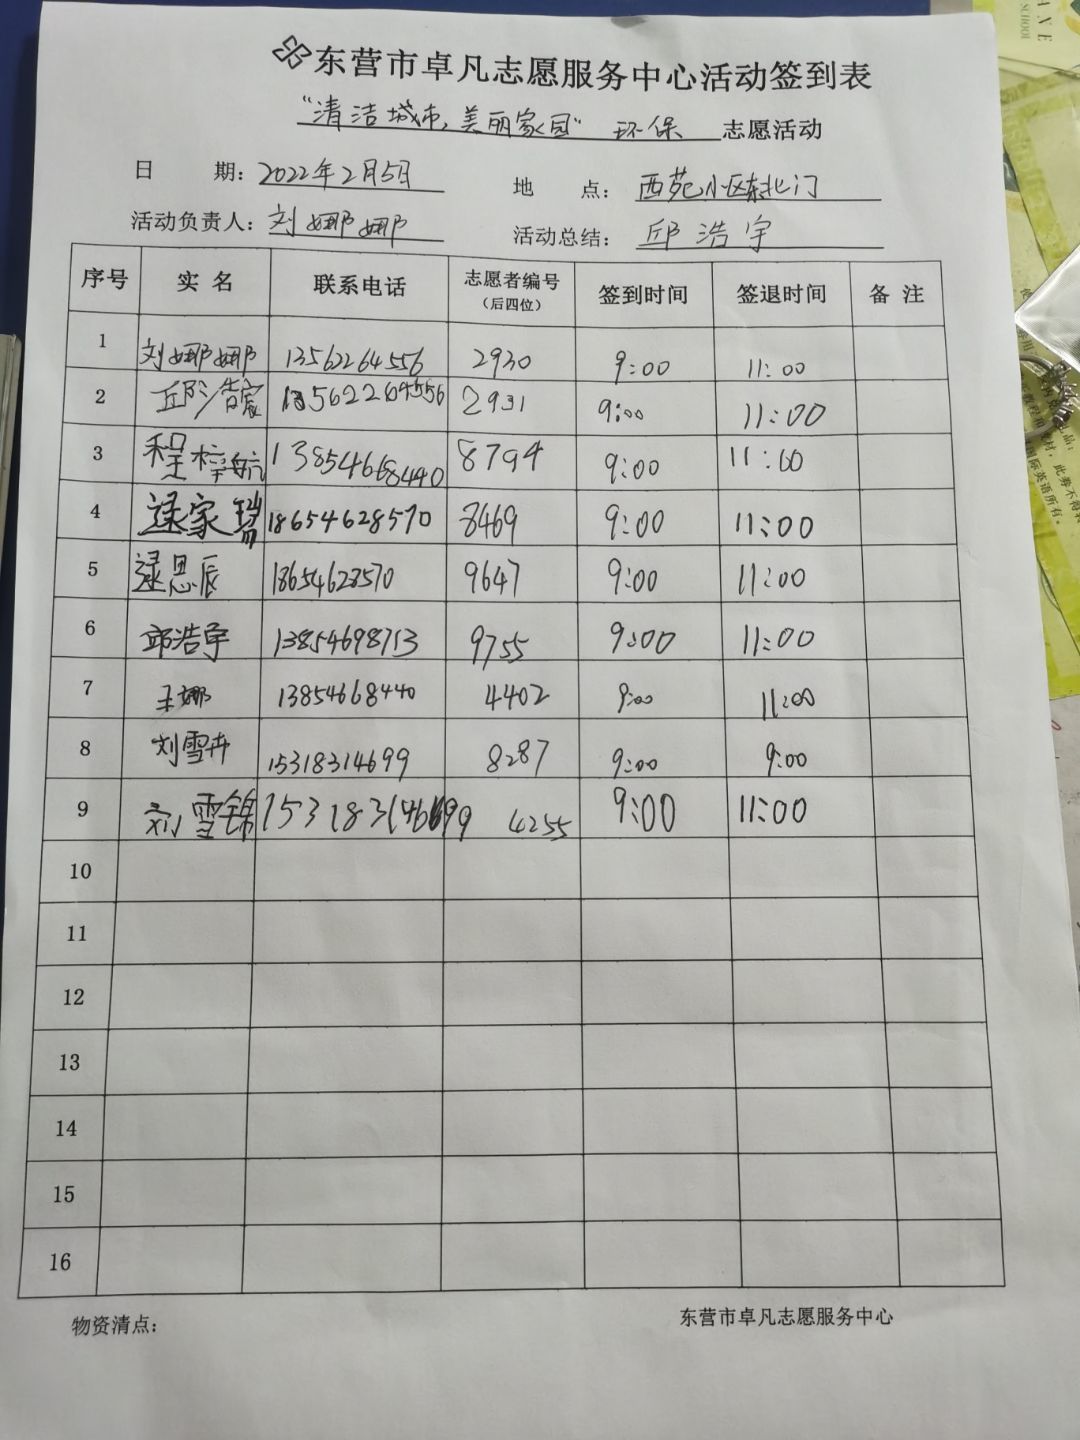 东营市卓凡志愿服务中心活动签到表
"清洁城市,美丽家园" 环保 志愿活动
日 期: 2022年2月5日 地 点: 西苑小区东北门
活动负责人: 刘娜娜 活动总结: 邱浩宇
序号 实名 联系电话 志愿者编号(后四位) 签到时间 签退时间 备注
1 刘娜娜 13562264556 2930 9:00 11:00
2 邱浩宸 13562264556 2931 9:00 11:00
3 程梓航 13854668440 8794 9:00 11:00
4 逯家瑞 18654628570 8469 9:00 11:00
5 逯恩辰 18654628570 9647 9:00 11:00
6 邱浩宇 13854698713 9755 9:00 11:00
7 王娜 13854668440 4402 9:00 11:00
8 刘雪卉 15318314699 8287 9:00 9:00
9 刘雪锦 15318314699 4255 9:00 11:00
10
11
12
13
14
15
16
物资清点: 东营市卓凡志愿服务中心